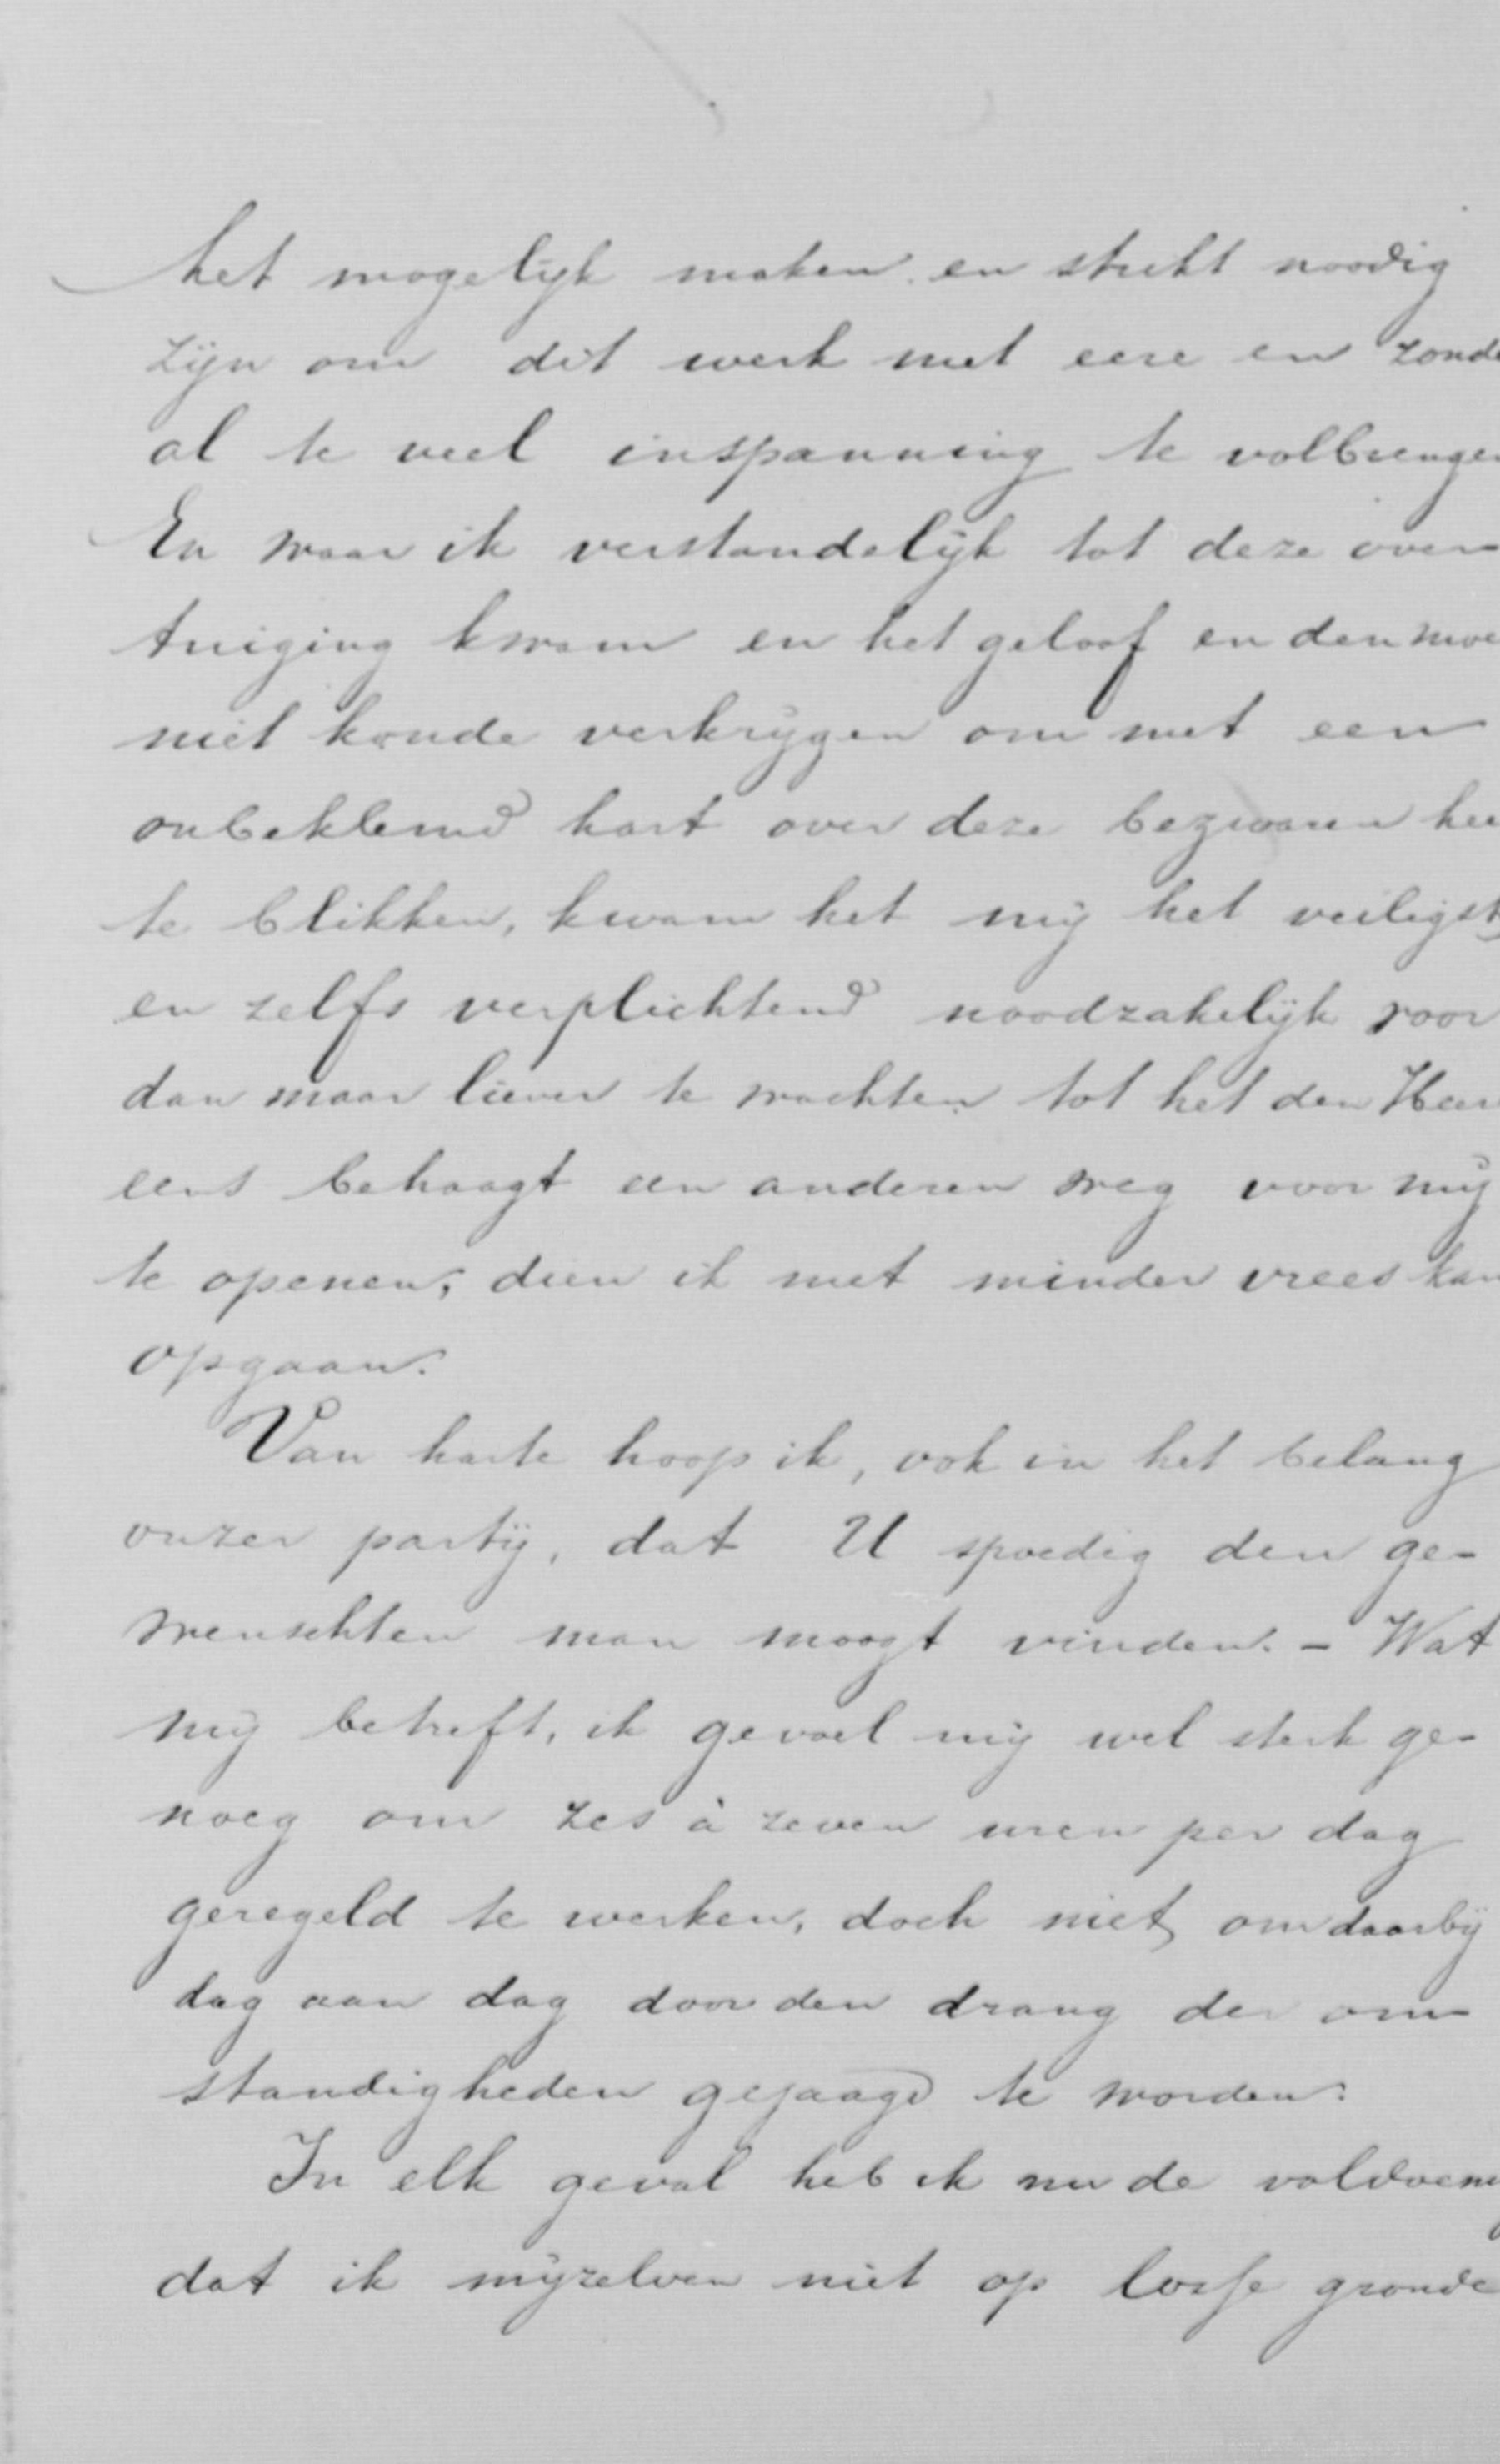 het mogelijk maken en strikt noodig
zijn om dit werk met eere en zonde
al te veel inspanning te volbrengen
En waar ik verstandelijk tot deze over-
tuiging kwam en het geloof en den moe
niet konde verkrijgen om met een
onbeklemd hart over deze bezwaren hee
te blikken, kwam het mij het veiligst
en zelfs verplichtend noodzakelijk voor
dan maar liever te wachten tot het den Heer
eens behaagt een anderen weg voor mij
te openen, dien ik met minder vrees kan
opgaan.
Van harte hoop ik, ook in het belang
onzer partij, dat U spoedig den ge-
wenschten man moogt vinden. - Wat
mij betreft, ik gevoel mij wel sterk ge-
noeg om zes à zeven uren per dag
geregeld te werken, doch niet om daarbij
dag aan dag door den drang der om-
standigheden gejaagd te worden.
In elk geval heb ik nu de voldoeni
dat ik mijzelven niet op losse gronde